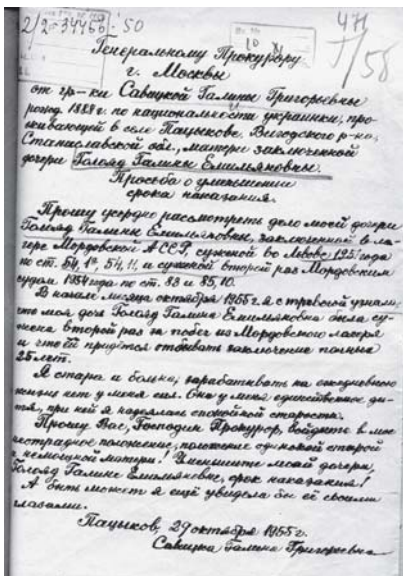 2/2-34466-50
471/58
Генеральному Прокурору
г. Москвы
от гр-ки Савицкой Галины Григорьевны
рожд. 1889 г. по национальности украинки, про-
живающей в селе Пацыкове. Выгодского р-на,
Станиславской обл., матери заключенной
дочери Голояд Галины Емильяновны.
Просьба о уменьшении
срока наказания.
Прошу усердно рассмотреть дело моей дочери
Голояд Галины Емильяновны, заключенной в ла-
гере Мордовской АССР, сужоной во Львове 1951 года
по ст. 54, 1ª, 54, 11, и сужоной второй раз Мордовским
судом 1954 года по ст. 82 и 85, 10.
В начале месяца октября 1955 г. я с тревогой узнала,
что моя дочь Голояд Галина Емильяновна была су-
жена второй раз за побег из Мордовского лагеря
и что ей придётся отбывать заключение полных
25 лет.
Я стара и больна, зарабатывать на ежедневною
жизнь нет у меня сил. Она у меня единственное ди-
тя, при ней я надеялась спокойной старости.
Прошу Вас, Господин Прокурор, войдить в мое
пострадное положение, положение одинокой старой
и немощной матери! Уменьшите моей дочери,
Голояд Галине Емильяновне, срок наказания!
А быть может я ещё увидела бы её своими
глазами.
Пацыков, 29 октября 1955 г.
Савицка Галина Григоровна